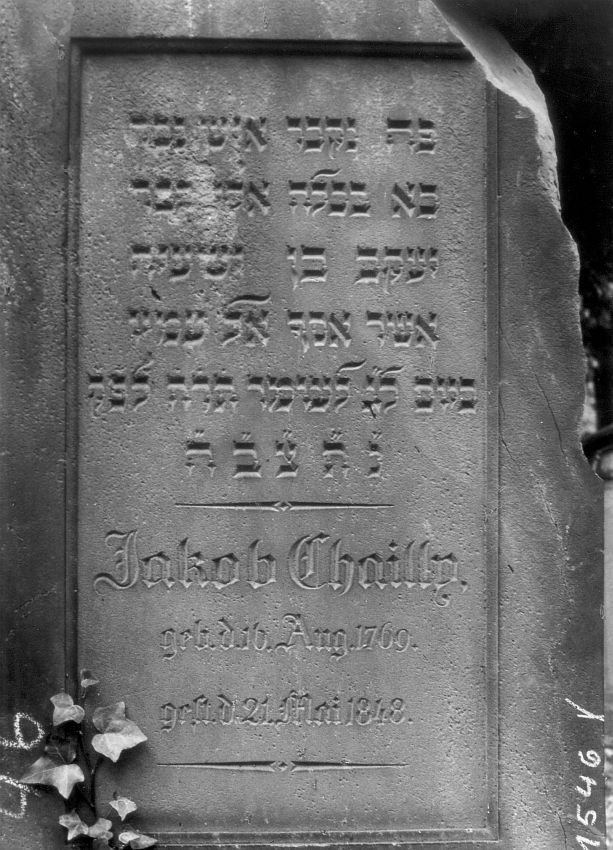 פה נקבר איש
בא בכלח אלי קבר
יעקב בן ישעיה
אשר אסף אל עמיו
ביום לג לעומר תרח לפק
נ ת צ ב ה
Jakob Chailly.
geb. d. 16. Aug. 1769.
gest. d. 21. Mei 1848.
1546